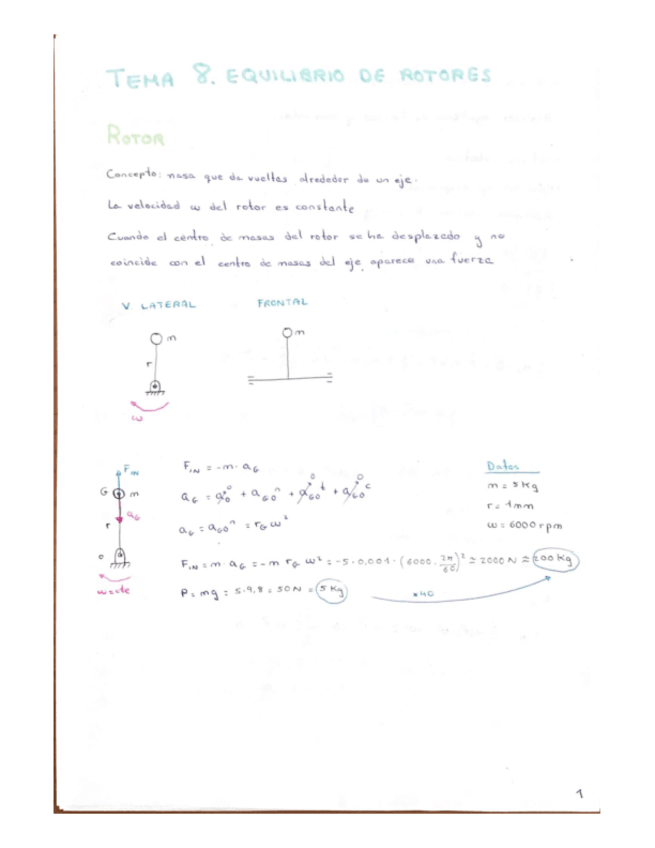 TEMA 8. EQUILIBRIO DE ROTORES
ROTOR
Concepto: masa que da vueltas alrededor de un eje.
La velocidad ω del rotor es constante
Cuando el centro de masas del rotor se ha desplazado y no
coincide con el centro de masas del eje aparece una fuerza
V LATERAL
FRONTAL
m
m
r
ω
F_IN
G
m
a_G
r
o
ω=cte
F_IN = -m · a_G
a_G = a_0^0 + a_G0^n + a_G0^t 0 + a_G0^c 0
a_G = a_G0^n = r_G ω²
F_IN = m · a_G = -m r_G ω² = -5 · 0,001 · (6000 · 2π/60)² ≅ 2000 N ≈ 200 Kg
P = mg = 5 · 9,8 = 50 N = 5 Kg
×40
Datos
m = 5 Kg
r = 1mm
ω = 6000 rpm
1